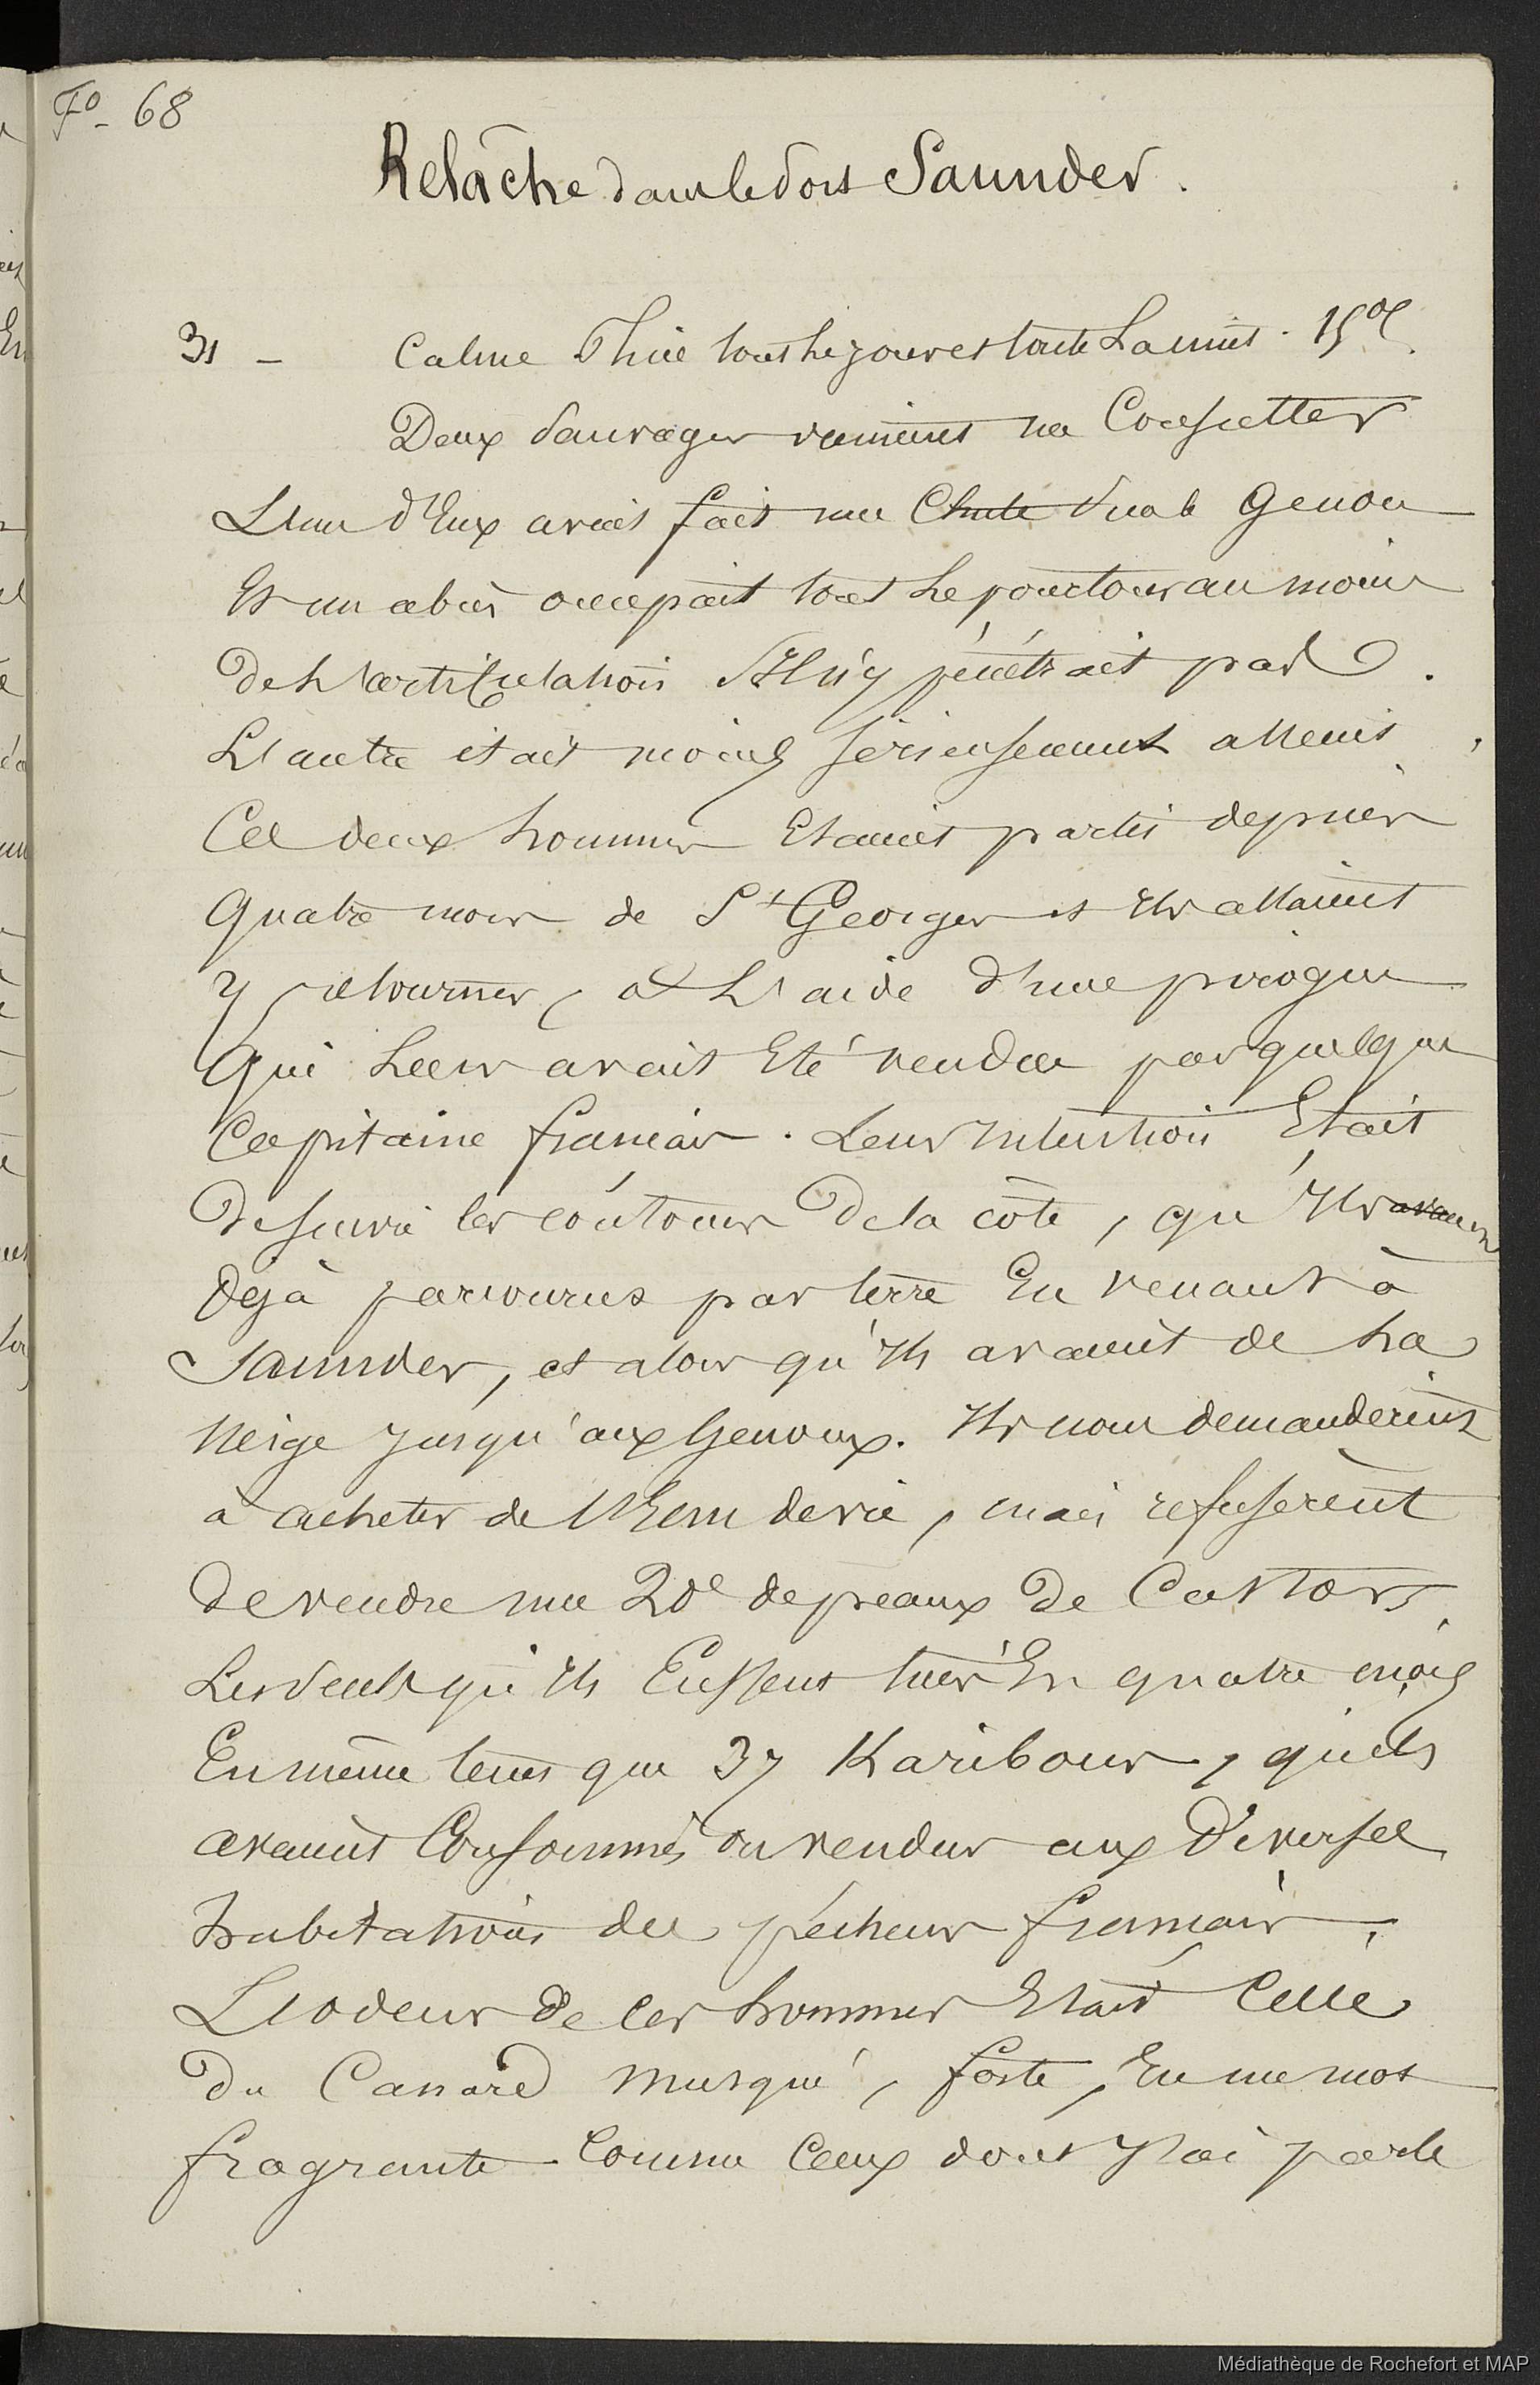 Fo. 68
Relâche dans le Port Saunder.
31 - Calme Plat tout le jour et toute La nuit. 15°C.
Deux Sauvages vinrent me Consulter
L'un d'Eux avait fait une Chute sur le Genou
Et un abcès occupait tout Le pourtour au moins
de L'articulation S'Il n'y pénétrait pas.
L'autre était moins sérieusement atteint,
Ces deux hommes Etaient partis depuis
Quatre mois de St Georges et Ils allaient
y retourner, à L'aide d'une pirogue
Qui Leur avait Eté vendue par quelque
Capitaine français. Leur Intention Etait
De suivre les contours De la côte, qu'Ils avaient
Déjà parcourus par terre En venant à
Saunder, et alors qu'Ils avaient de La
Neige Jusqu'aux Genoux. Ils nous demandèrent
à acheter de L'Eau de vie, mais refusèrent
De vendre une 20e de peaux De Castors,
Les seuls qu'Ils Eussent tués En quatre mois
En même tems que 37 Karibous, qu'ils
avaient Consommés ou vendus aux Diverses
habitations des pêcheurs français.
L'odeur de ces hommes Etait Celle
Du Canard musqué, forte, En un mot
fragrante Comme Ceux dont J'ai parlé
Médiathèque de Rochefort et MAP